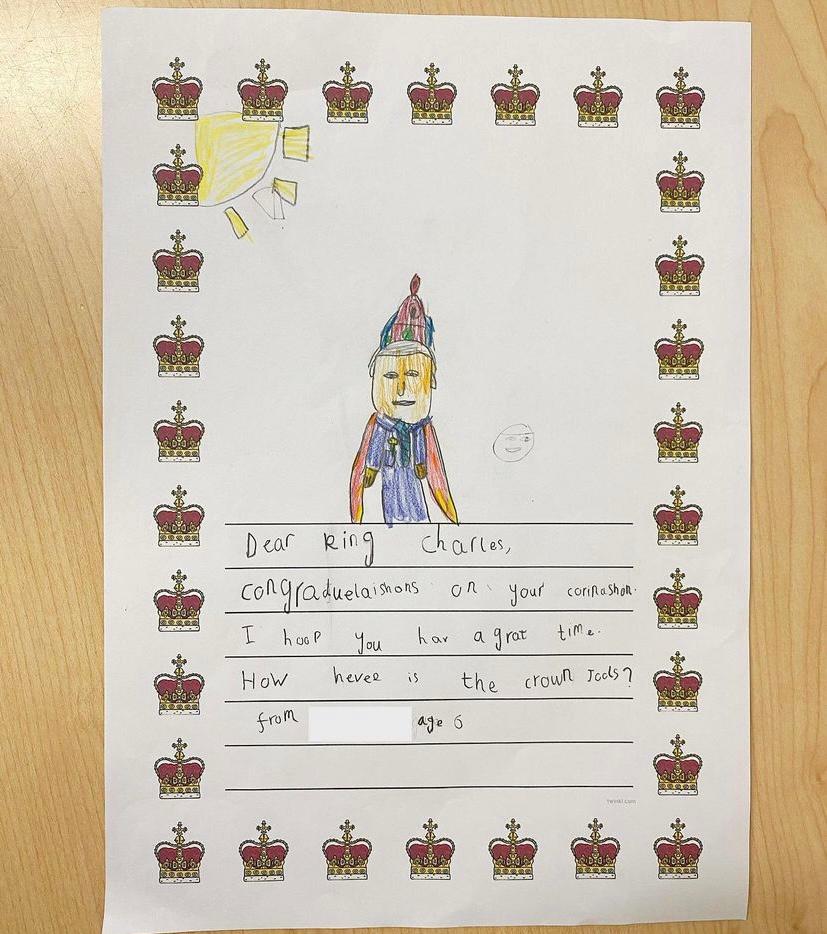 Dear king Charles,
congraduelaishons on your corinashon.
I hoop you hav a grat time.
How hevee is the crown Jools?
from age 6
twinkl.com